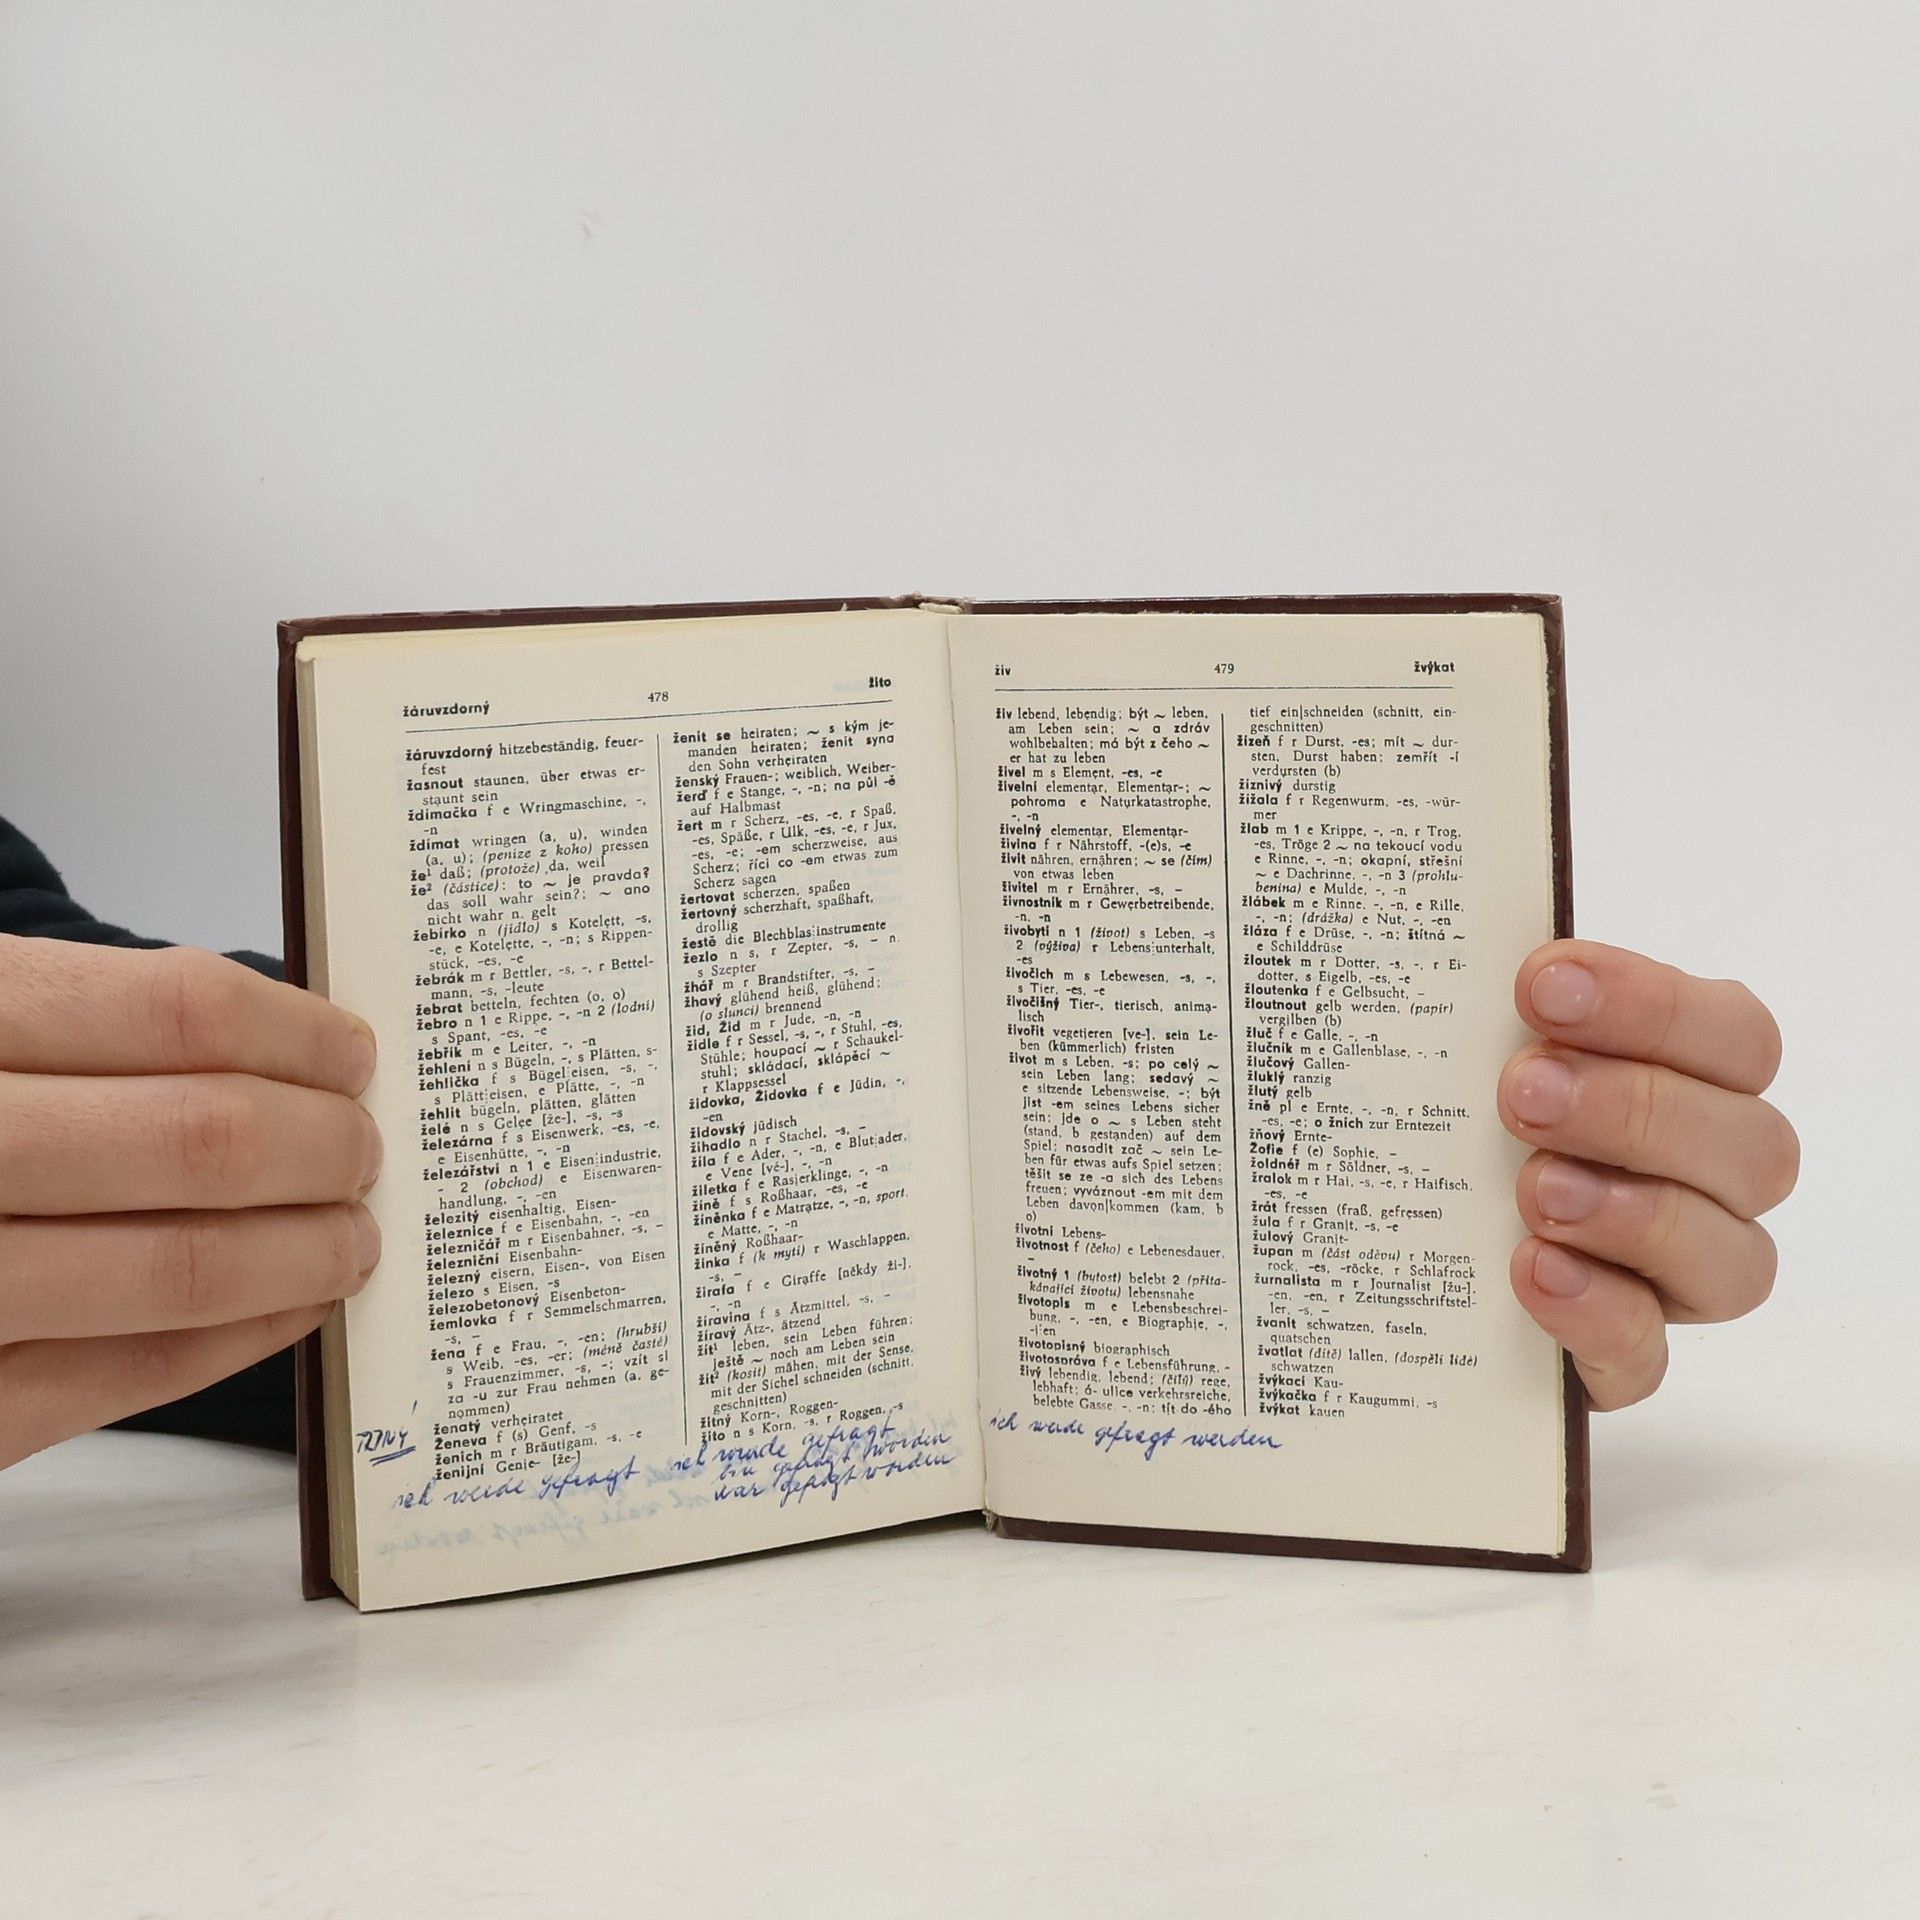 žáruvzdorný 478 žito
žáruvzdorný hitzebeständig, feuer-
fest
žasnout staunen, über etwas er-
staunt sein
ždímačka f e Wringmaschine, -,
-n
ždímat wringen (a, u), winden
(a, u); (peníze z koho) pressen
že¹ daß; (protože) da, weil
že² (částice): to ~ je pravda?
das soll wahr sein?; ~ ano
nicht wahr n. gelt
žebírko n (jídlo) s Kotelett, -s,
-e, e Kotelette, -, -n; s Rippen-
stück, -es, -e
žebrák m r Bettler, -s, -, r Bettel-
mann, -s, -leute
žebrat betteln, fechten (o, o)
žebro n 1 e Rippe, -, -n 2 (lodní)
s Spant, -es, -e
žebřík m e Leiter, -, -n
žehlení n s Bügeln, -, s Plätten, s-
žehlička f s Bügel¦eisen, -s, -,
s Plätt¦eisen, e Plätte, -, -n
žehlit bügeln, plätten, glätten
želé n s Gelee [že-], -s, -s
železárna f s Eisenwerk, -es, -e,
e Eisenhütte, -, -n
železářství n 1 e Eisen¦industrie,
- 2 (obchod) e Eisenwaren-
handlung, -, -en
železitý eisenhaltig, Eisen-
železnice f e Eisenbahn, -, -en
železničář m r Eisenbahner, -s, -
železniční Eisenbahn-
železný eisern, Eisen-, von Eisen
železo s Eisen, -s
železobetonový Eisenbeton-
žemlovka f r Semmelschmarren,
-s, -
žena f e Frau, -, -en; (hrubší)
s Weib, -es, -er; (méně časté)
s Frauenzimmer, -s, -; vzít si
za -u zur Frau nehmen (a, ge-
nommen)
ženatý verheiratet
Ženeva f (s) Genf, -s
ženich m r Bräutigam, -s, -e
ženijní Genie- [že-]
ženit se heiraten; ~ s kým je-
manden heiraten; ženit syna
den Sohn verheiraten
ženský Frauen-; weiblich, Weiber-
žerď f e Stange, -, -n; na půl -ě
auf Halbmast
žert m r Scherz, -es, -e, r Spaß,
-es, Späße, r Ulk, -es, -e, r Jux,
-es, -e; -em scherzweise, aus
Scherz; říci co -em etwas zum
Scherz sagen
žertovat scherzen, spaßen
žertovný scherzhaft, spaßhaft,
drollig
žestě die Blechblas¦instrumente
žezlo n s, r Zepter, -s, - n.
s Szepter
žhář m r Brandstifter, -s, -
žhavý glühend heiß, glühend;
(o slunci) brennend
žid, Žid m r Jude, -n, -n
židle f r Sessel, -s, -, r Stuhl, -es,
Stühle; houpací ~ r Schaukel-
stuhl; skládací, sklápěcí ~
r Klappsessel
židovka, Židovka f e Jüdin, -,
-en
židovský jüdisch
žihadlo n r Stachel, -s, -
žíla f e Ader, -, -n, e Blut¦ader,
e Vene [vé-], -, -n
žiletka f e Rasierklinge, -, -n
žíně f s Roßhaar, -es, -e
žíněnka f e Matratze, -, -n, sport.
e Matte, -, -n
žíněný Roßhaar-
žínka f (k mytí) r Waschlappen,
-s, -
žirafa f e Giraffe [někdy ži-],
-, -n
žíravina f s Ätzmittel, -s, -
žíravý Ätz-, ätzend
žít¹ leben, sein Leben führen;
ještě ~ noch am Leben sein
žít² (kosit) mähen, mit der Sense,
mit der Sichel schneiden (schnitt,
geschnitten)
žitný Korn-, Roggen-
žito n s Korn, -s, r Roggen, -s
TRPNÝ
ich werde gefragt
ich wurde gefragt
bin gefragt worden
war gefragt worden
živ 479 žvýkat
živ lebend, lebendig; být ~ leben,
am Leben sein; ~ a zdráv
wohlbehalten; má být z čeho ~
er hat zu leben
živel m s Element, -es, -e
živelní elementar, Elementar-; ~
pohroma e Naturkatastrophe,
-, -n
živelný elementar, Elementar-
živina f r Nährstoff, -(e)s, -e
živit nähren, ernähren; ~ se (čím)
von etwas leben
živitel m r Ernährer, -s, -
živnostník m r Gewerbetreibende,
-n, -n
živobytí n 1 (život) s Leben, -s
2 (výživa) r Lebens¦unterhalt,
-es
živočich m s Lebewesen, -s, -,
s Tier, -es, -e
živočišný Tier-, tierisch, anima-
lisch
živořit vegetieren [ve-], sein Le-
ben (kümmerlich) fristen
život m s Leben, -s; po celý ~
sein Leben lang; sedavý ~
e sitzende Lebensweise, -; být
jist -em seines Lebens sicher
sein; jde o ~ s Leben steht
(stand, b gestanden) auf dem
Spiel; nasadit zač ~ sein Le-
ben für etwas aufs Spiel setzen;
těšit se ze -a sich des Lebens
freuen; vyváznout -em mit dem
Leben davon|kommen (kam, b
o)
životní Lebens-
životnost f (čeho) e Lebenesdauer,
-
životný 1 (bytost) belebt 2 (přita-
kávající životu) lebensnahe
životopis m e Lebensbeschrei-
bung, -, -en, e Biographie, -,
-i¦en
životopisný biographisch
životospráva f e Lebensführung, -
živý lebendig, lebend; (čilý) rege,
lebhaft; á- ulice verkehrsreiche,
belebte Gasse, -, -n; tít do -ého
tief ein|schneiden (schnitt, ein-
geschnitten)
žízeň f r Durst, -es; mít ~ dur-
sten, Durst haben; zemřít -í
verdursten (b)
žíznivý durstig
žížala f r Regenwurm, -es, -wür-
mer
žlab m 1 e Krippe, -, -n, r Trog,
-es, Tröge 2 ~ na tekoucí vodu
e Rinne, -, -n; okapní, střešní
~ e Dachrinne, -, -n 3 (prohlu-
benina) e Mulde, -, -n
žlábek m e Rinne, -, -n, e Rille,
-, -n; (drážka) e Nut, -, -en
žláza f e Drüse, -, -n; štítná ~
e Schilddrüse
žloutek m r Dotter, -s, -, r Ei-
dotter, s Eigelb, -es, -e
žloutenka f e Gelbsucht, -
žloutnout gelb werden, (papír)
vergilben (b)
žluč f e Galle, -, -n
žlučník m e Gallenblase, -, -n
žlučový Gallen-
žluklý ranzig
žlutý gelb
žně pl e Ernte, -, -n, r Schnitt,
-es, -e; o žních zur Erntezeit
žňový Ernte-
Žofie f (e) Sophie, -
žoldnéř m r Söldner, -s, -
žralok m r Hai, -s, -e, r Haifisch,
-es, -e
žrát fressen (fraß, gefressen)
žula f r Granit, -s, -e
žulový Granit-
župan m (část oděvu) r Morgen-
rock, -es, -röcke, r Schlafrock
žurnalista m r Journalist [žu-],
-en, -en, r Zeitungsschriftstel-
ler, -s, -
žvanit schwatzen, faseln,
quatschen
žvatlat (dítě) lallen, (dospělí lidé)
schwatzen
žvýkací Kau-
žvýkačka f r Kaugummi, -s
žvýkat kauen
ich werde gefragt werden